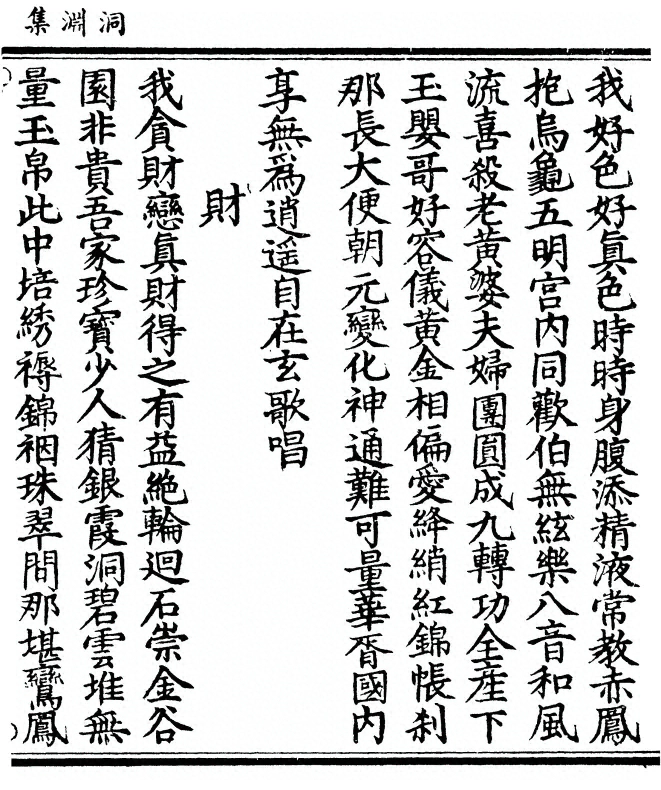 洞淵集
我好色好眞色時時身腹添精液常教赤鳳
抱烏龜五明宮內同歡伯無絃樂八音和風
流喜殺老黃婆夫婦團圓成九轉功全産下
玉嬰哥好容儀黃金相偏愛絳綃紅錦帳剎
那長大便朝元變化神通難可量華胥國內
享無爲逍遥自在玄歌唱
財
我貪財戀眞財得之有益絶輪迴石崇金谷
園非貴吾家珍寶少人猜銀霞洞碧雲堆無
量玉帛此中培綉褥錦裀珠翠間那堪鸞鳳